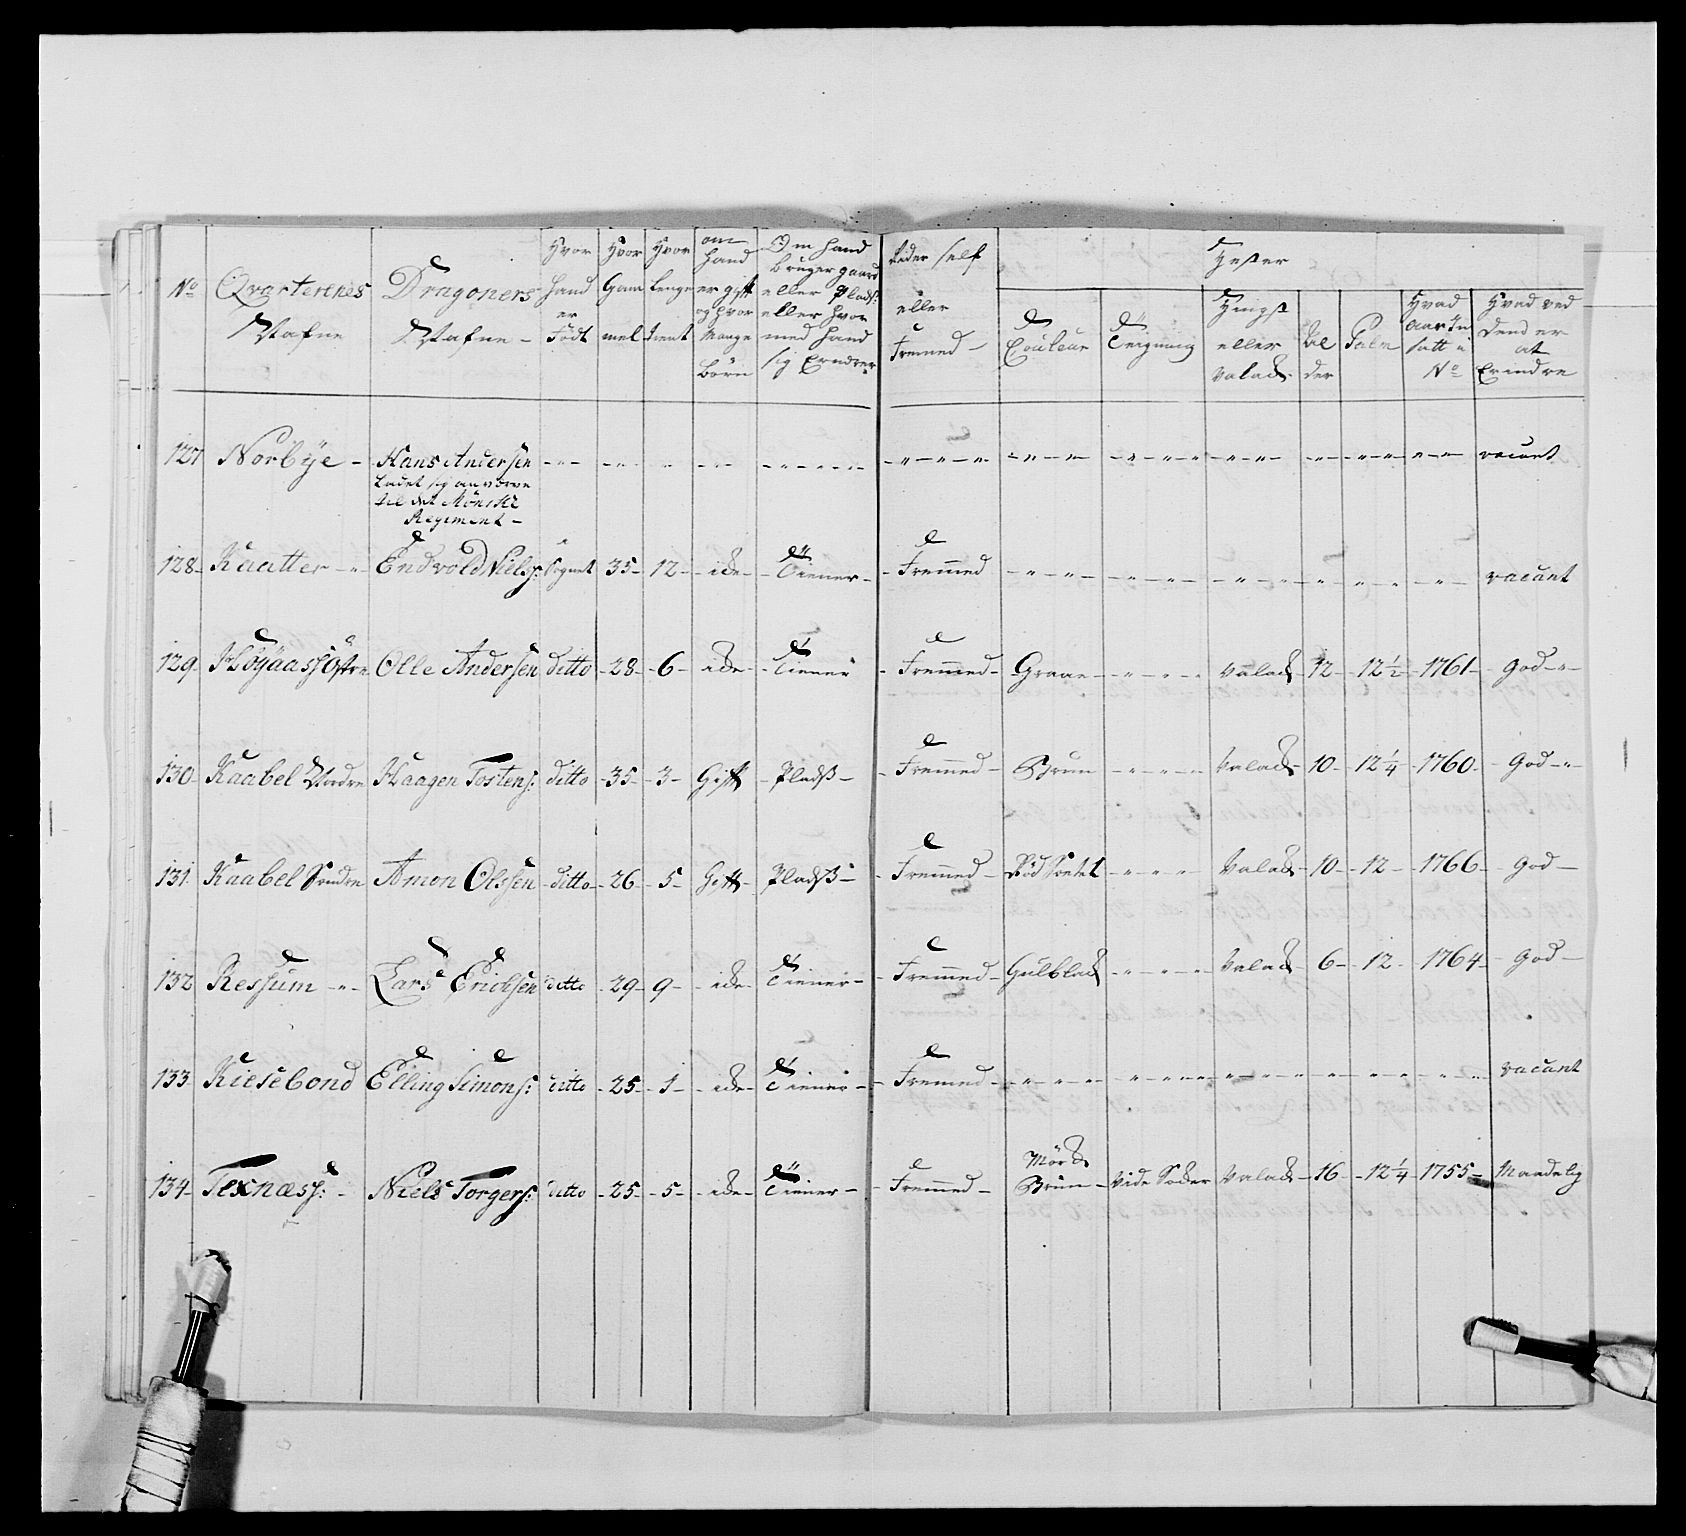 No Qvarterenes Nafne | Dragoners Nafne - | Hvor Hand er Född | Hvor Gam mel | Hvor Lenge tient | om Hand er gift og Hvor Mange Börn | Om Hand bruger gaard eller Plads: eller Hvor med Hand sig Ernærer | Rider self eller Fremmed - | Hester
Couleur | Teigning | Hingst eller Valack | Al der | Palm | Hvad Aar In satt i No | Hvad ved Dend er at Erindre
127 Norbÿe - Hans Andersen - " - vacant
Ladet sig anverve
til det Mönske
Regiment -
128 - Kaatter - " - Endvold Niels: Sognet - 35 - 12 - ide - Tiener - - Fremmed - " - " - vacant
129 - Högaass Östre Olle Andersen ditto - 28 - 6 - ide - Tiener - Fremmed - Graae - " - " - Valack - 12 - 12 1/2 - 1761 - God - " -
130 Kaabel Nordre Haagen Tostens: ditto - 35 - 3 - Gift - Pladß - - Fremmed - Brun - " - " - Valack - 10 - 12 1/4 - 1760 - God - "
131 Kaabel Søndre Amon Olssen ditto - 26 - 5 - Gift - Pladß - - Fremmed - Röd Sortet - " - " - Valack - 10 - 12 - 1766 - God -
132 Ressum - " - Lars Erichsen ditto - 29 - 9 - ide - Tiener - - Fremmed - Gulblack - " - " - Valack - 6 - 12 - 1764 - God -
133 Kiesebond Elling Simons: ditto - 25 - 1 - ide - Tiener - - Fremed - " - " - vacant
134 Texnæss: - Niels Torgers: ditto - 25 - 5 - ide - Tiener - - Fremmed - Mörck Brün - Vide Söder Valack - 16 - 12 1/4 - 1755 - Maadelig